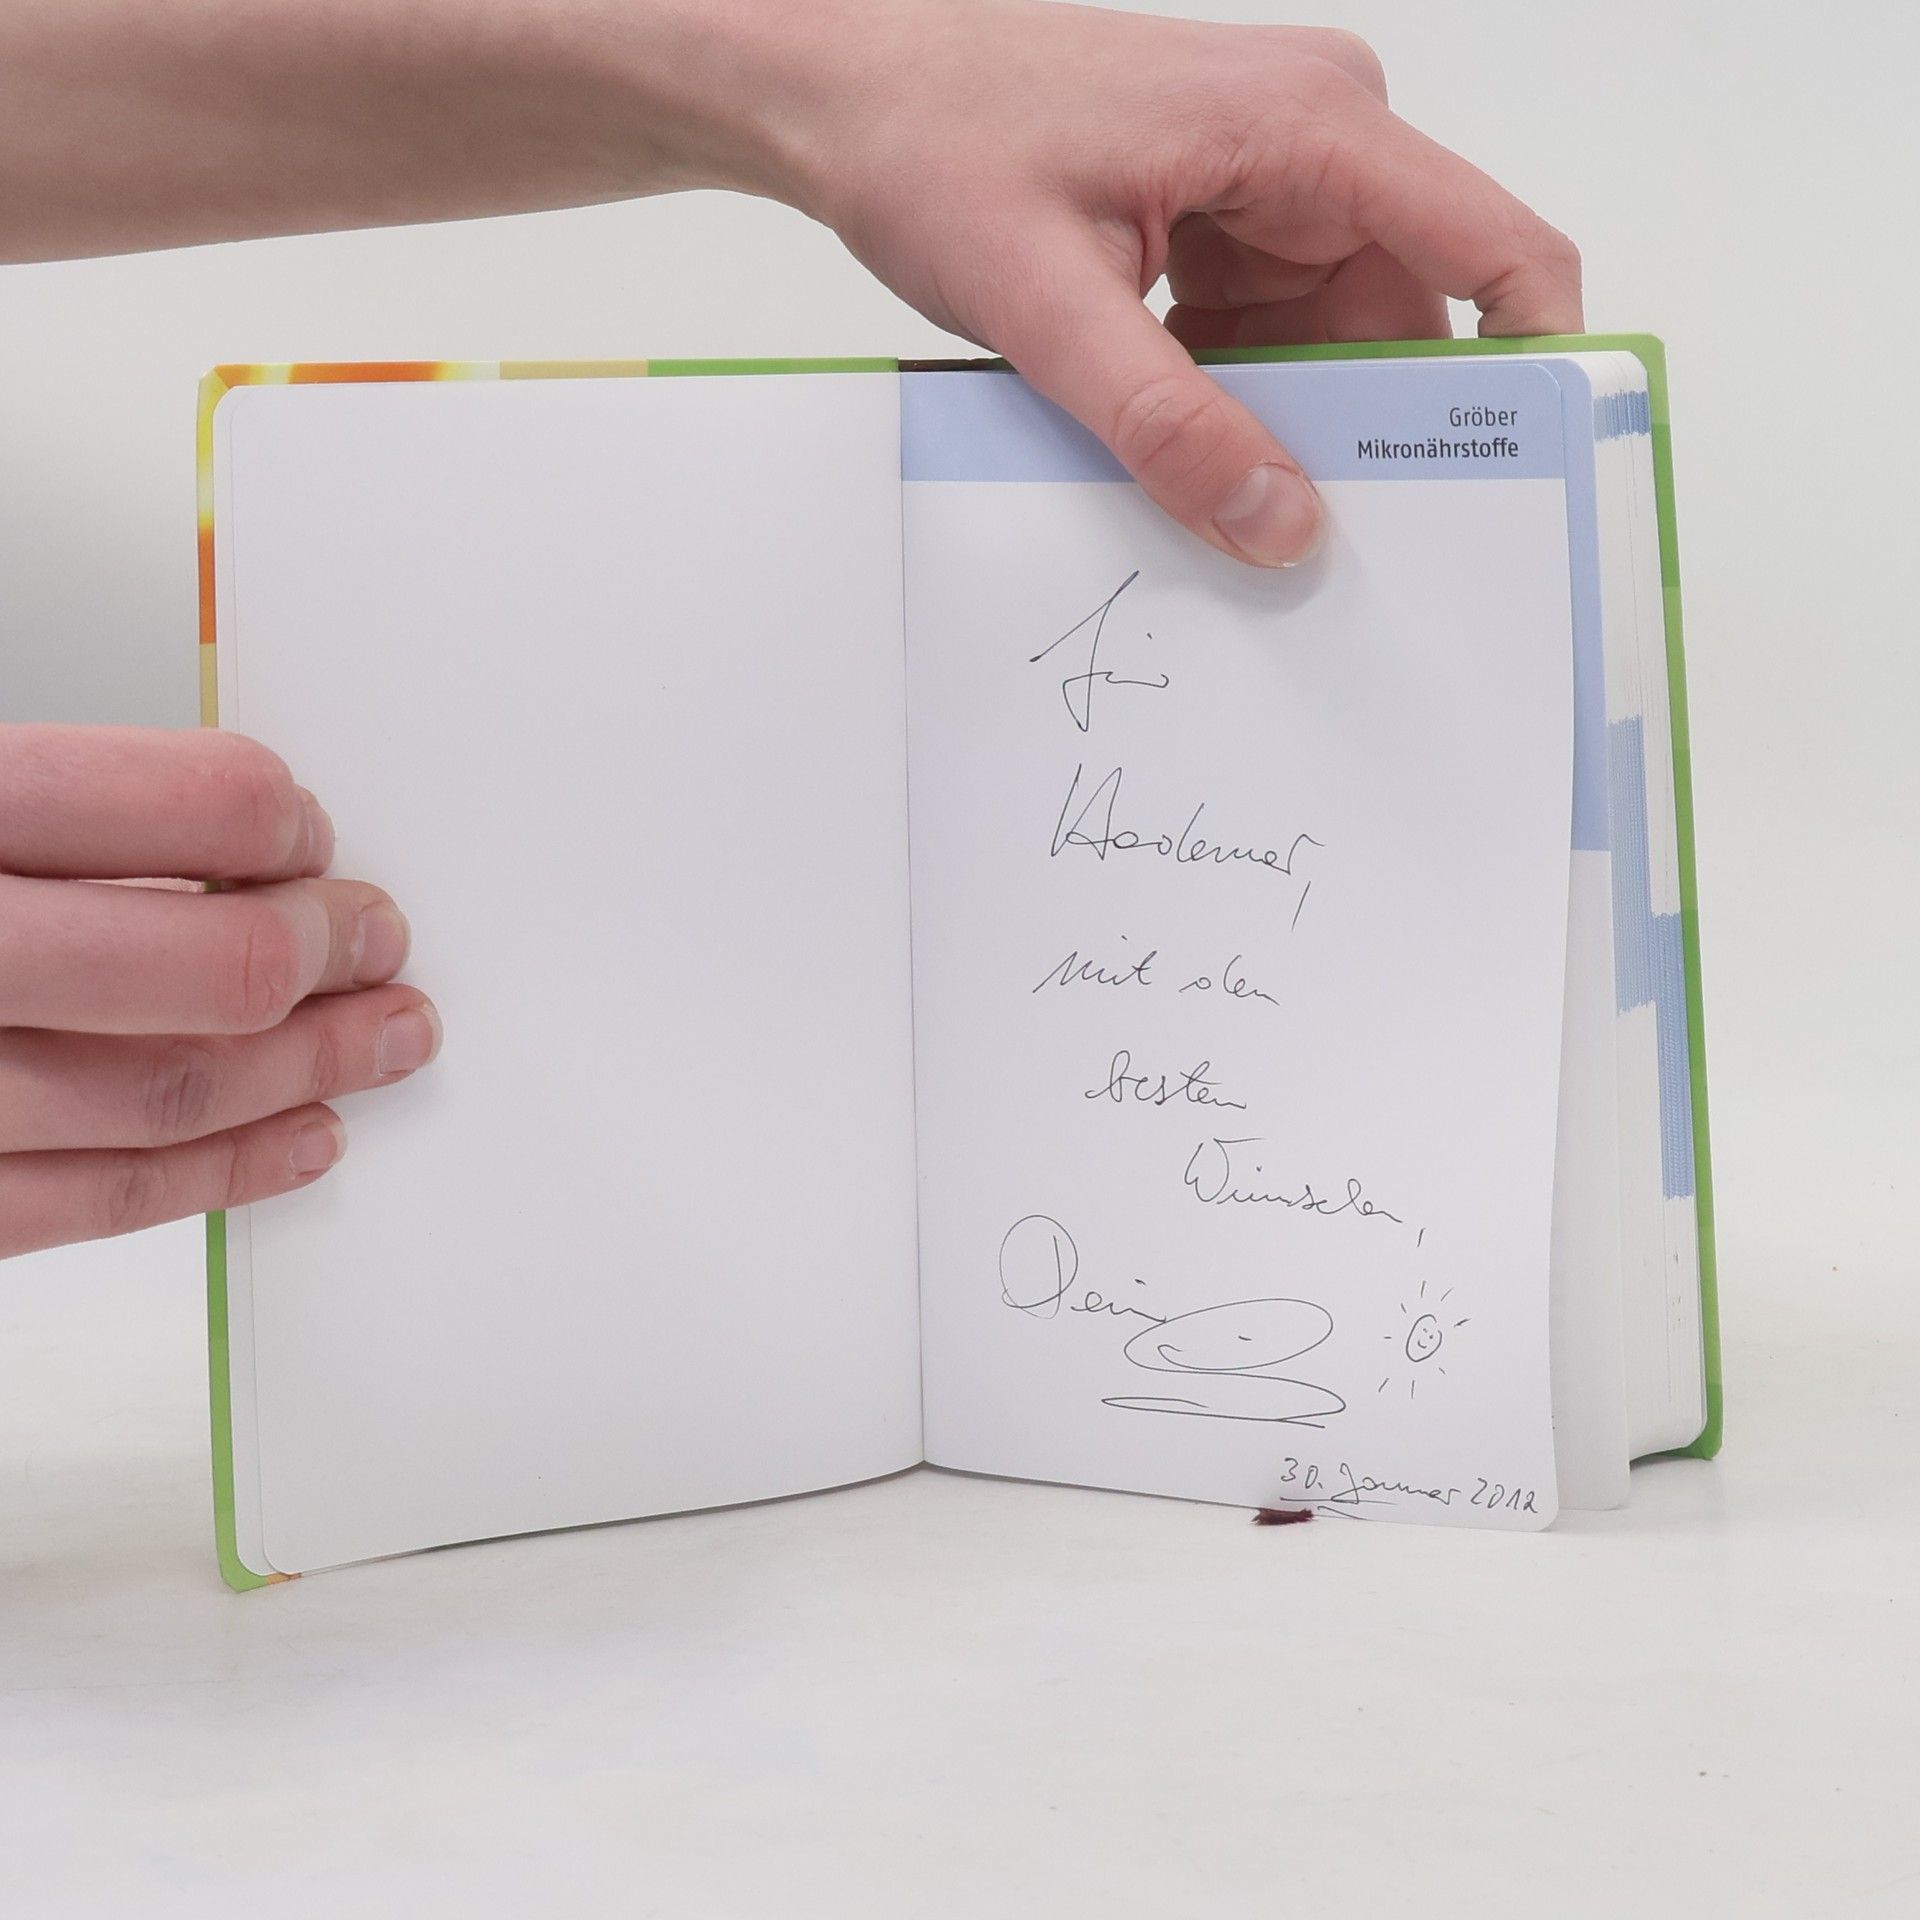 Gröber
Mikronährstoffe
Für
mit den
besten
Wünschen,
Dein
30. Januar 2012